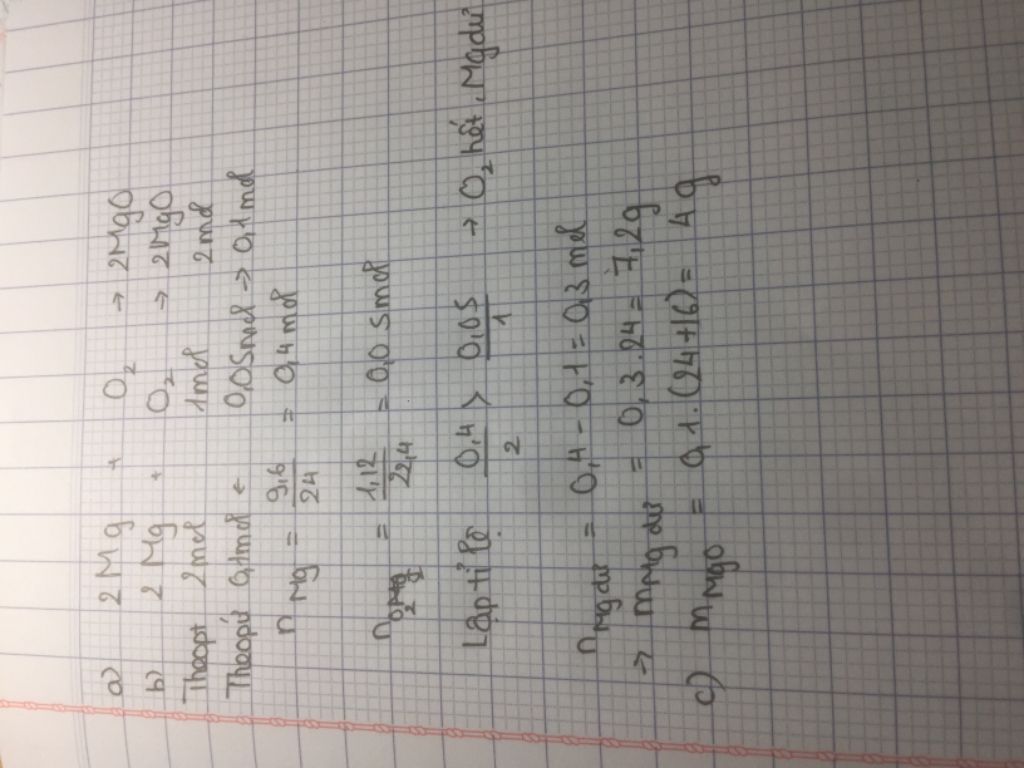 a) 2Mg + O₂ → 2MgO
b) 2Mg + O₂ → 2MgO
Theopt 2mol 1mol 2mol
Theopứ 0,1mol ← 0,05mol → 0,1mol
n Mg = 9,6/24 = 0,4 mol
n O₂ = 1,12/22,4 = 0,05mol
Lập tỉ lệ. 0,4/2 > 0,05/1 → O₂ hết, Mg dư
n Mg dư = 0,4 - 0,1 = 0,3 mol
→ m Mg dư = 0,3.24 = 7,2g
c) m MgO = 0,1.(24+16) = 4g